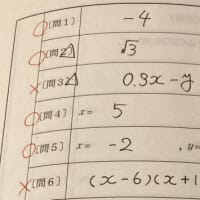 〔問1〕 -4
〔問2〕 √3
〔問3〕 0.9x-y
〔問4〕 x= 5
〔問5〕 x= -2 , y=
〔問6〕 (x-6)(x+1